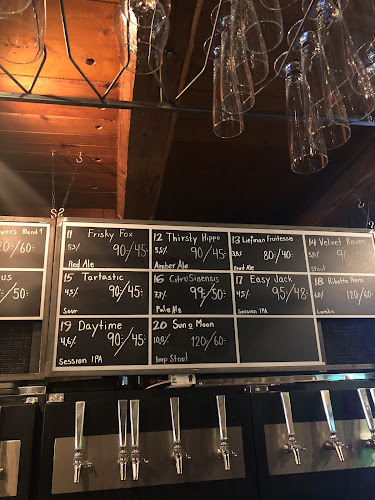 wers Blend 1
120:/60:
us
50:
11 Frisky Fox
5,3% 90:/45:
Red Ale
12 Thirsty Hippo
5,5% 90:/45:
Amber Ale
13 Liefman Fruitesse
3,8% 80:/40:
Fruit Ale
14 Velvet Raven
5,0% 90:
Stout
15 Tartastic
4,5% 90:/45:
Sour
16 Citrus Sinensis
7,3% 99:/50:
Pale Ale
17 Easy Jack
4,5% 95:/48:
Session IPA
18
120:
Lambic
19 Daytime
4,6% 90:/45:
Session IPA
20 Sun & Moon
10,0% 120:/60:
Imp Stout